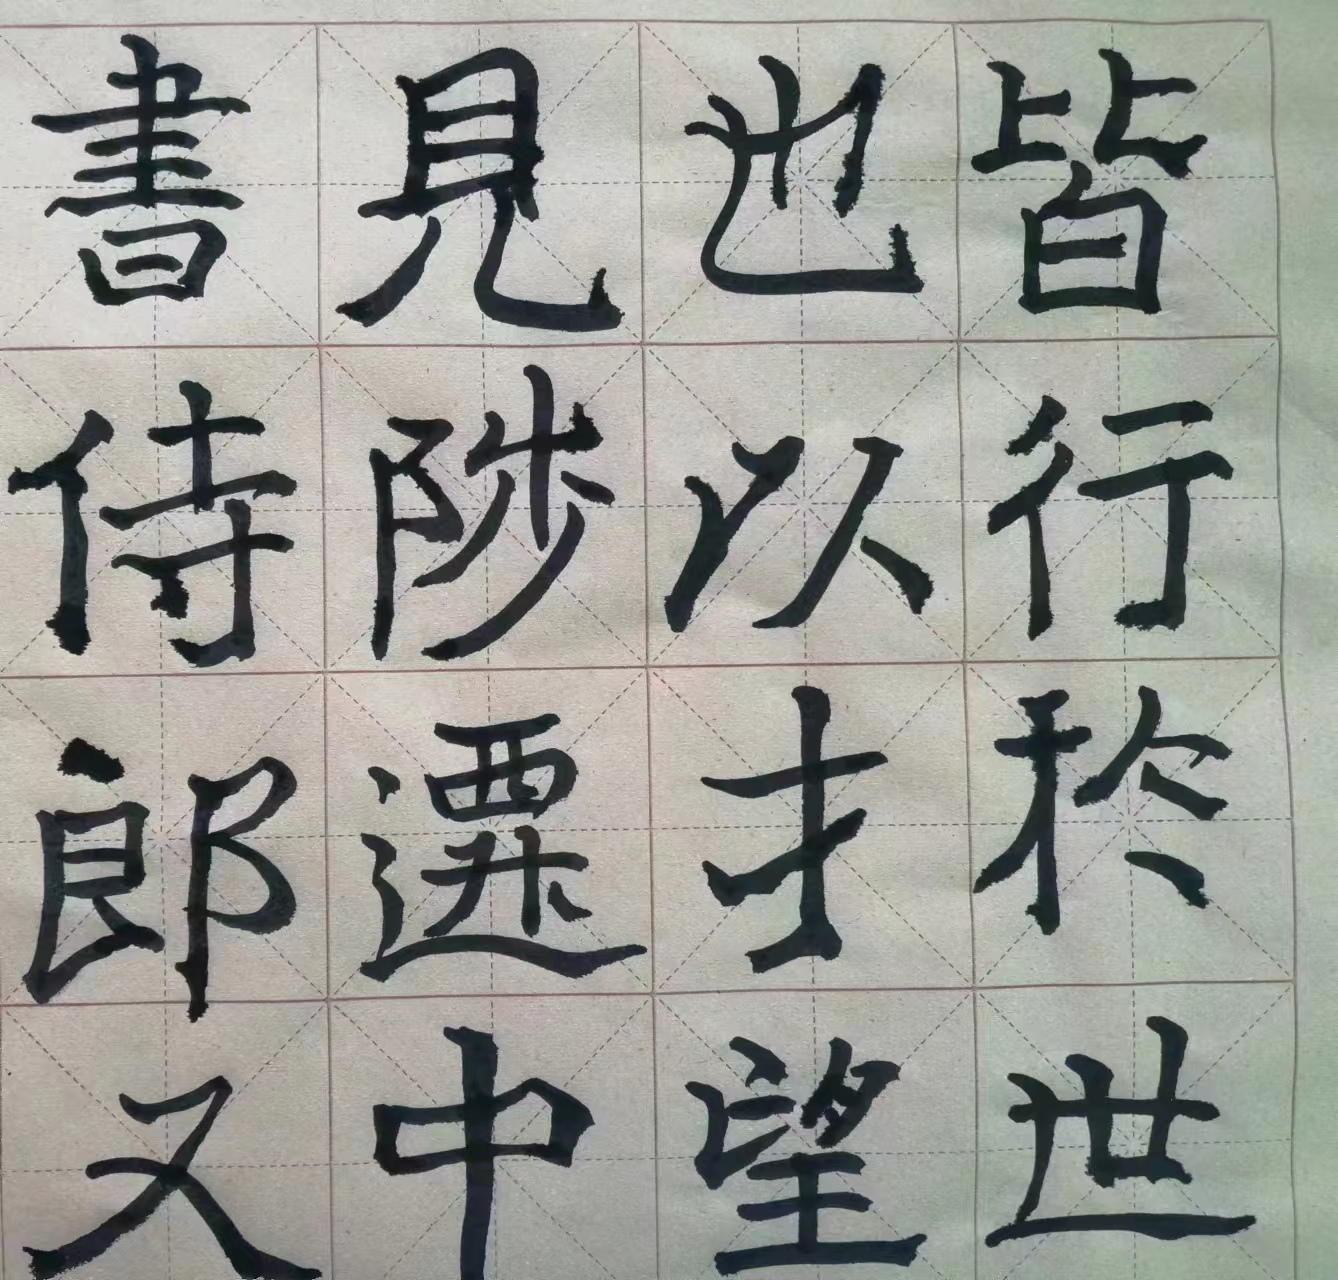 皆行於世
也以才望
見陟遷中
書侍郎又